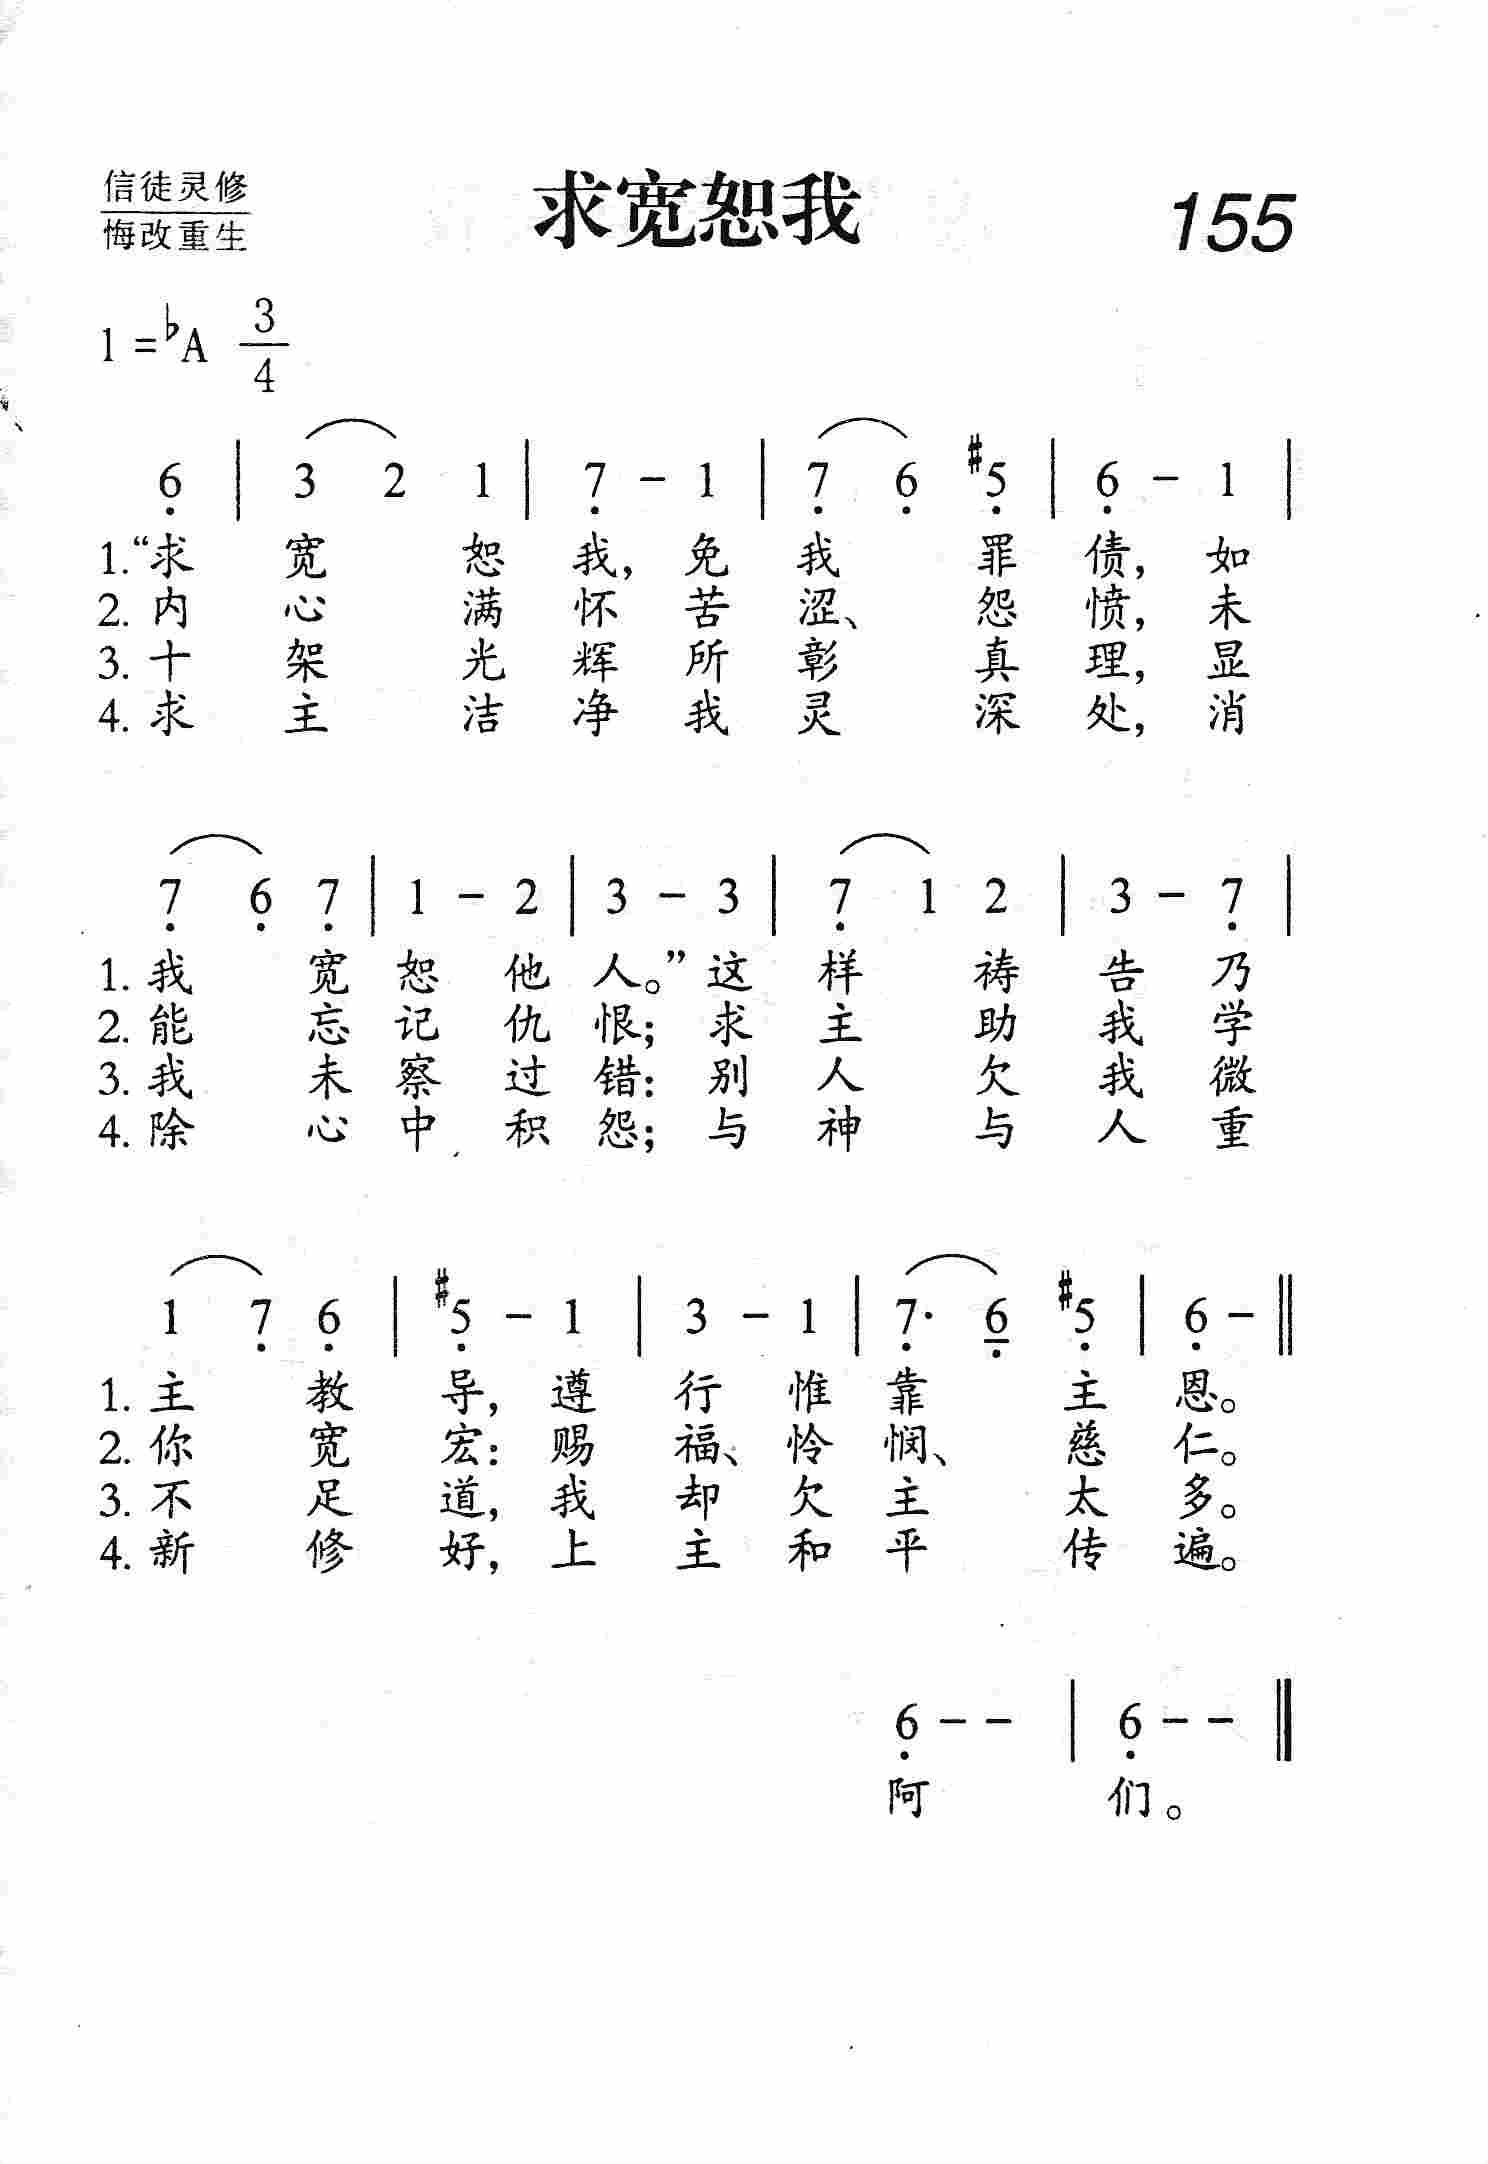 信徒灵修
悔改重生
求宽恕我
155
1=♭A 3/4
6̣ | 3 2 1 | 7̣ - 1 | 7̣ 6̣ #5̣ | 6̣ - 1 |
1.“求宽恕我，免我罪债，如
2.内心满怀苦涩、怨愤，未
3.十架光辉所彰真理，显
4.求主洁净我灵深处，消
7̣ 6̣ 7̣ | 1 - 2 | 3 - 3 | 7̣ 1 2 | 3 - 7̣ |
1.我宽恕他人。”这样祷告乃
2.能忘记仇恨；求主助我学
3.我未察过错：别人欠我微
4.除心中积怨；与神与人重
1 7̣ 6̣ | #5̣ - 1 | 3 - 1 | 7̣· 6̣ #5̣ | 6̣ - ‖
1.主教导，遵行惟靠主恩。
2.你宽宏：赐福、怜悯、慈仁。
3.不足道，我却欠主太多。
4.新修好，上主和平传遍。
6̣ - - | 6̣ - - ‖
阿们。